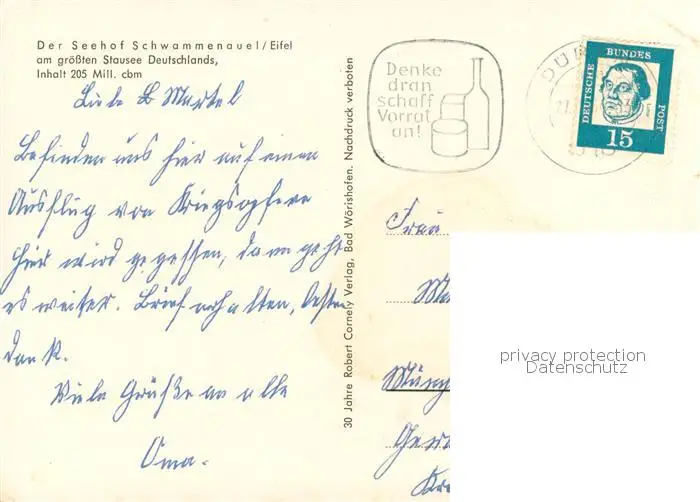 Der Seehof Schwammenauel/Eifel
am größten Stausee Deutschlands,
Inhalt 205 Mill. cbm
Liebe Martel
Befinden uns hier auf einen
Ausflug von Kriegsopfern
hier wird gegessen, dann geht
es weiter. Brief erhalten, besten
Dank.
Viele Grüße an alle
Oma.
30 Jahre Robert Cornely Verlag, Bad Wörishofen. Nachdruck verboten
Denke
dran
schaff
Vorrat
an!
DÜ
DEUTSCHE
BUNDES
POST
15
Frau
privacy protection
Datenschutz